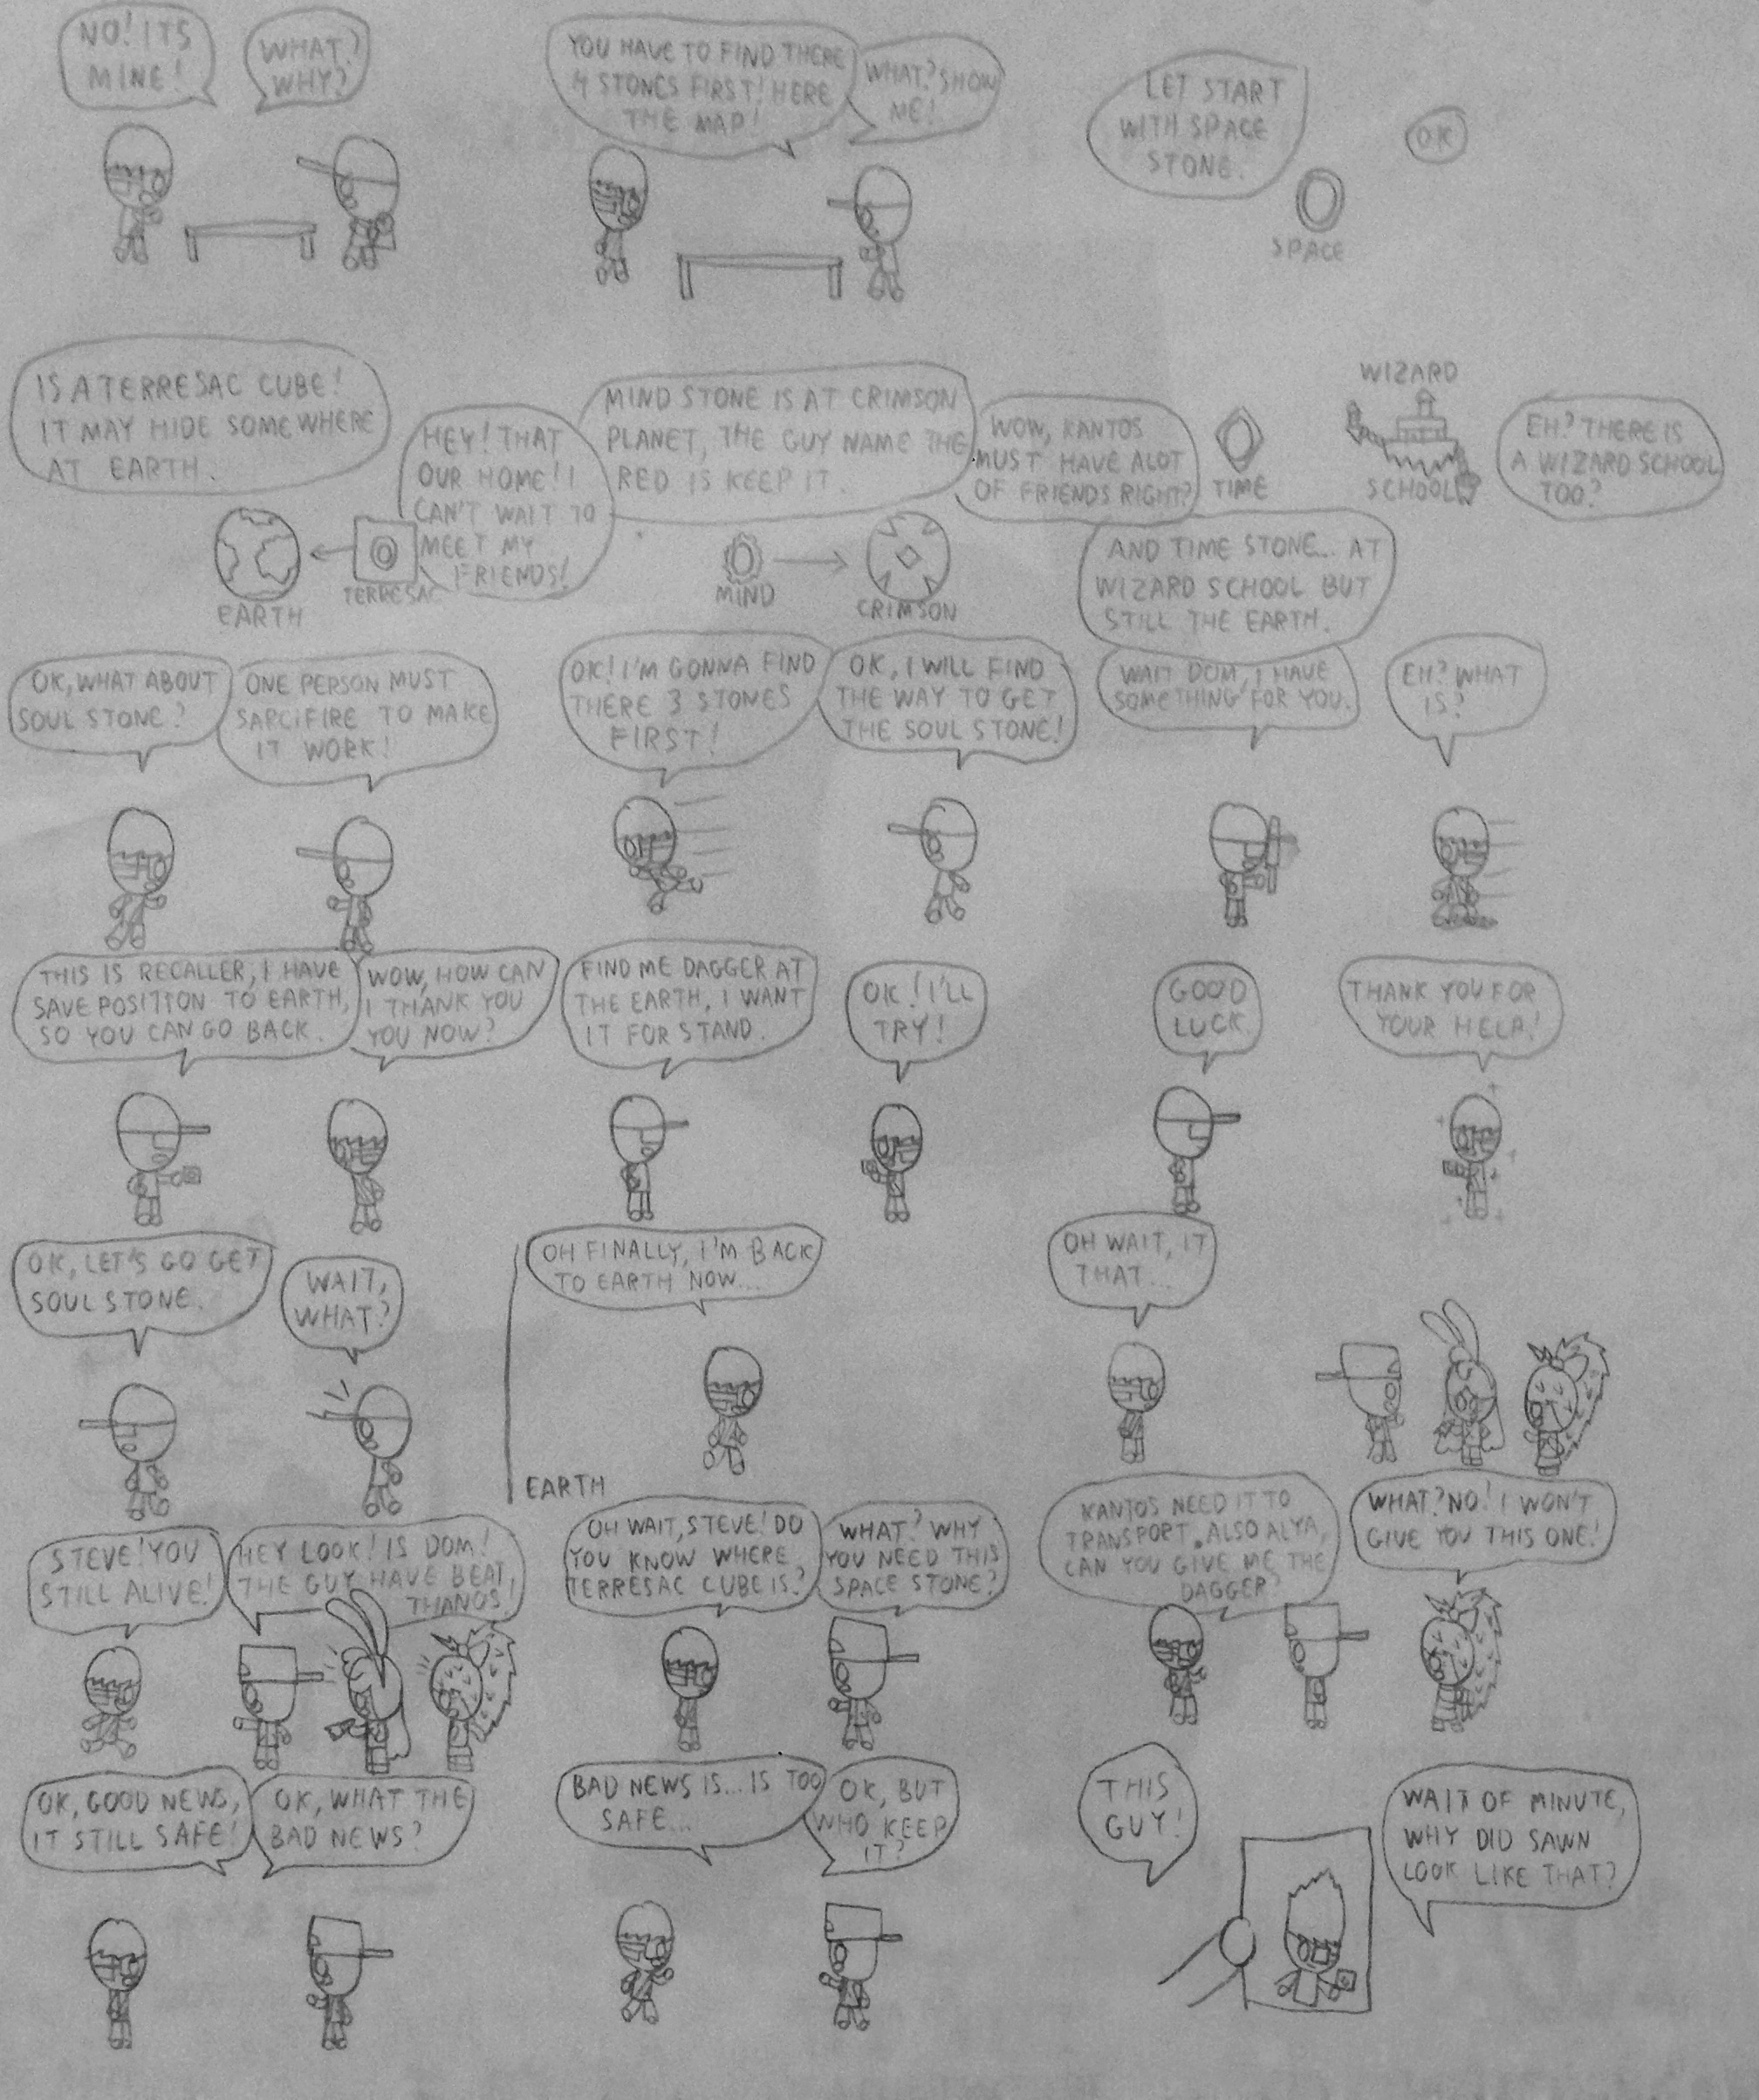 NO! ITS
MINE!
WHAT?
WHY?
YOU HAVE TO FIND THERE
4 STONES FIRST! HERE
THE MAP!
WHAT? SHOW
ME!
LET START
WITH SPACE
STONE.
OK
SPACE
IS A TERRESAC CUBE!
IT MAY HIDE SOMEWHERE
AT EARTH.
HEY! THAT
OUR HOME! I
CAN'T WAIT TO
MEET MY
FRIENDS!
EARTH
TERRESAC
MIND STONE IS AT CRIMSON
PLANET, THE GUY NAME THE
RED IS KEEP IT.
WOW, KANTOS
MUST HAVE ALOT
OF FRIENDS RIGHT?
MIND
CRIMSON
TIME
WIZARD
SCHOOL
EH? THERE IS
A WIZARD SCHOOL
TOO?
AND TIME STONE... AT
WIZARD SCHOOL BUT
STILL THE EARTH.
OK, WHAT ABOUT
SOUL STONE?
ONE PERSON MUST
SARCIFIRE TO MAKE
IT WORK!
OK! I'M GONNA FIND
THERE 3 STONES
FIRST!
OK, I WILL FIND
THE WAY TO GET
THE SOUL STONE!
WAIT DOM, I HAVE
SOMETHING FOR YOU.
EH? WHAT
IS?
THIS IS RECALLER, I HAVE
SAVE POSITION TO EARTH,
SO YOU CAN GO BACK.
WOW, HOW CAN
I THANK YOU
YOU NOW?
FIND ME DAGGER AT
THE EARTH, I WANT
IT FOR STAND.
OK! I'LL
TRY!
GOOD
LUCK.
THANK YOU FOR
YOUR HELP!
OK, LET'S GO GET
SOUL STONE.
WAIT,
WHAT?
OH FINALLY, I'M BACK
TO EARTH NOW...
EARTH
OH WAIT, IT
THAT...
STEVE! YOU
STILL ALIVE!
HEY LOOK! IS DOM!
THE GUY HAVE BEAT
THANOS!
OH WAIT, STEVE! DO
YOU KNOW WHERE
TERRESAC CUBE IS?
WHAT? WHY
YOU NEED THIS
SPACE STONE?
KANTOS NEED IT TO
TRANSPORT. ALSO ALYA,
CAN YOU GIVE ME THE
DAGGER?
WHAT? NO! I WON'T
GIVE YOU THIS ONE!
OK, GOOD NEWS,
IT STILL SAFE!
OK, WHAT THE
BAD NEWS?
BAD NEWS IS... IS TOO
SAFE...
OK, BUT
WHO KEEP
IT?
THIS
GUY!
WAIT OF MINUTE,
WHY DID SAWN
LOOK LIKE THAT?